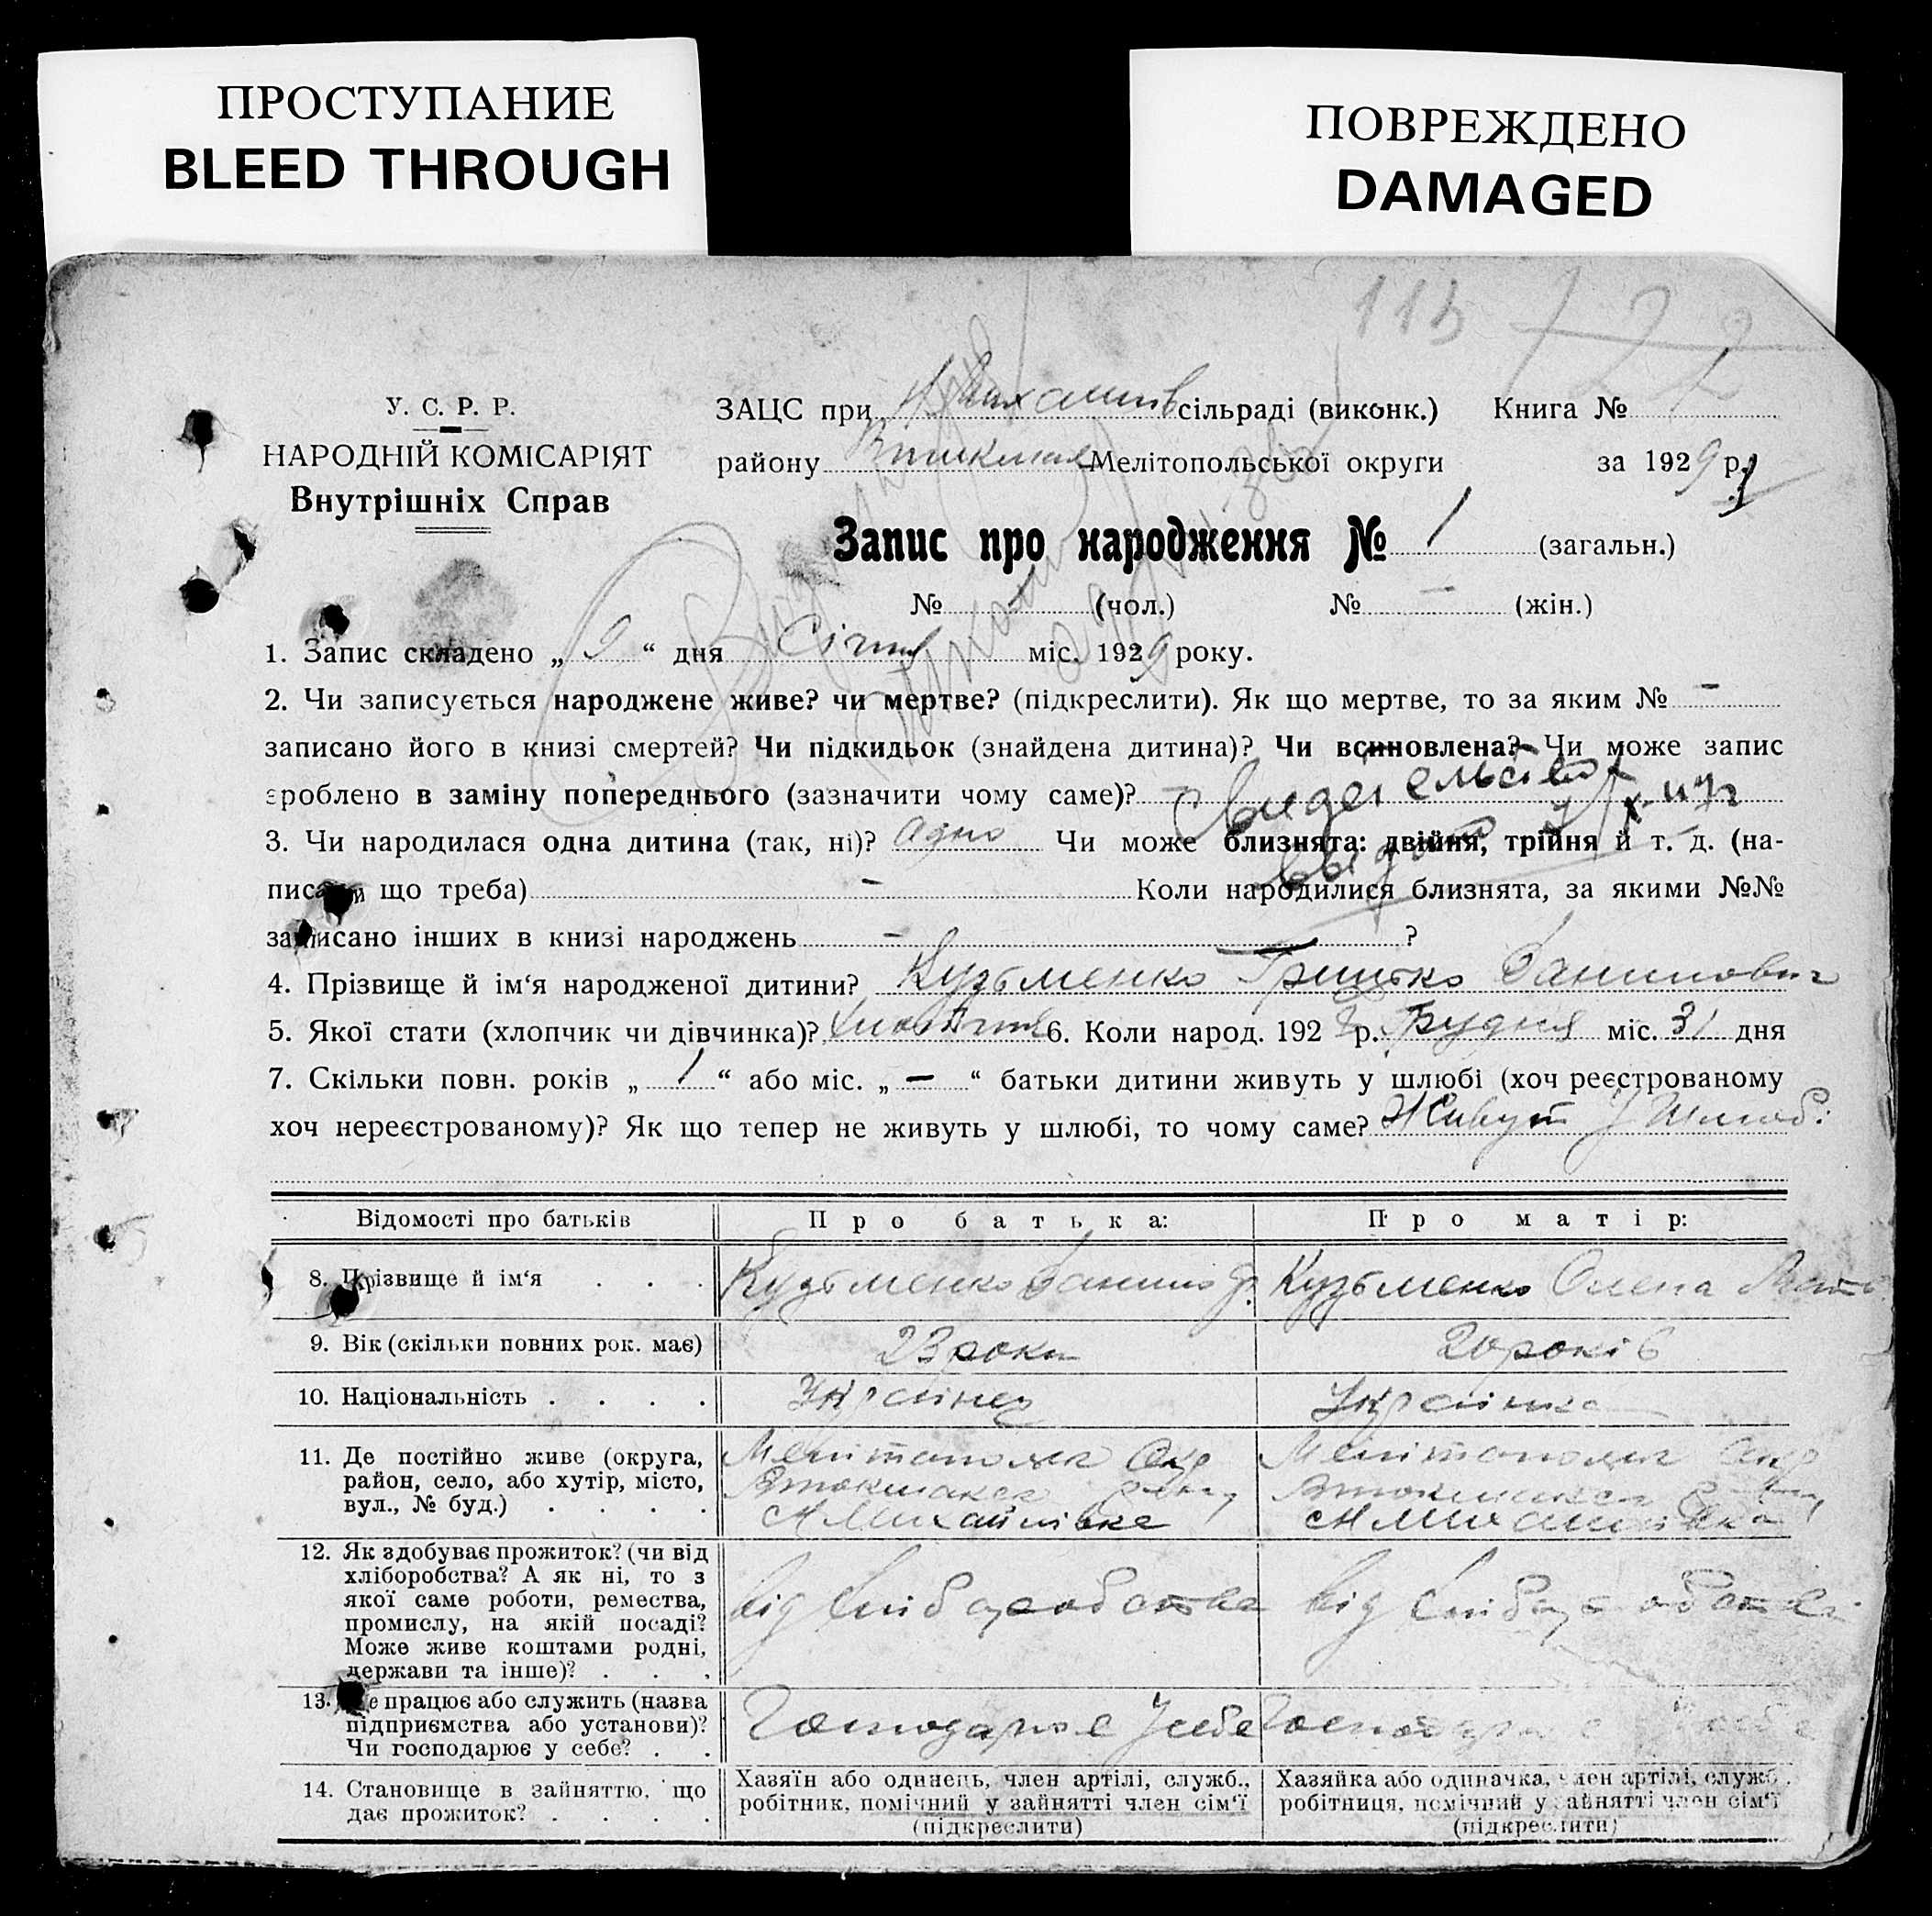 ПРОСТУПАНИЕ
BLEED THROUGH
ПОВРЕЖДЕНО
DAMAGED
113 122
У. С. Р. Р.
НАРОДНІЙ КОМІСАРІЯТ
Внутрішніх Справ
ЗАЦС при сільраді (виконк.) Книга №
району Мелітопольської округи за 1929 р.
Запис про народження № 1 (загальн.)
№ 1 (чол.) № — (жін.)
1. Запис складено „ 9 “ дня Січня міс. 1929 року.
2. Чи записується народжене живе? чи мертве? (підкреслити). Як що мертве, то за яким № —
записано його в книзі смертей? Чи підкидьок (знайдена дитина)? Чи всиновлена? Чи може запис
зроблено в заміну попереднього (зазначити чому саме)? —
3. Чи народилася одна дитина (так, ні)? одно Чи може близнята: двійня, трійня й т. д. (на-
писати що треба) — Коли народилися близнята, за якими №№
записано інших в книзі народжень — ?
4. Прізвище й ім‘я народженої дитини? Кузьменко Грицько Данилович
5. Якої стати (хлопчик чи дівчинка)? 6. Коли народ. 1928 р. Грудня міс. 31 дня
7. Скільки повн. років „ 1 “ або міс. „ — “ батьки дитини живуть у шлюбі (хоч реєстрованому
хоч нереєстрованому)? Як що тепер не живуть у шлюбі, то чому саме? Живут у Шлюбі
Відомості про батьків Про батька: Про матір:
8. Прізвище й ім‘я . . . Кузьменко Данило Кузьменко Олена
9. Вік (скільки повних рок. має) 23 роки 20 років
10. Національність . . . . Українец Українка
11. Де постійно живе (округа,
район, село, або хутір, місто,
вул., № буд.) . . . .
Мелітополя Окр
Втокмакск району
Н Михайлівка
Мелітополя Окр
Втокмакск району
Н Михайлівка
12. Як здобуває прожиток? (чи від
хліборобства? А як ні, то з
якої саме роботи, ремества,
промислу, на якій посаді?
Може живе коштами родні,
держави та інше)? . . .
від хліборобства від хліборобства
13. Де працює або служить (назва
підприємства або установи)?
Чи господарює у себе? . .
Господарює У себе Господарює У себе
14. Становище в зайняттю, що
дає прожиток? . . . .
Хазяїн або одинець, член артілі, служб.,
робітник, помічний у зайнятті член сім‘ї
(підкреслити)
Хазяйка або одиначка, член артілі, служб.,
робітниця, помічний у зайнятті член сім‘ї
(підкреслити)